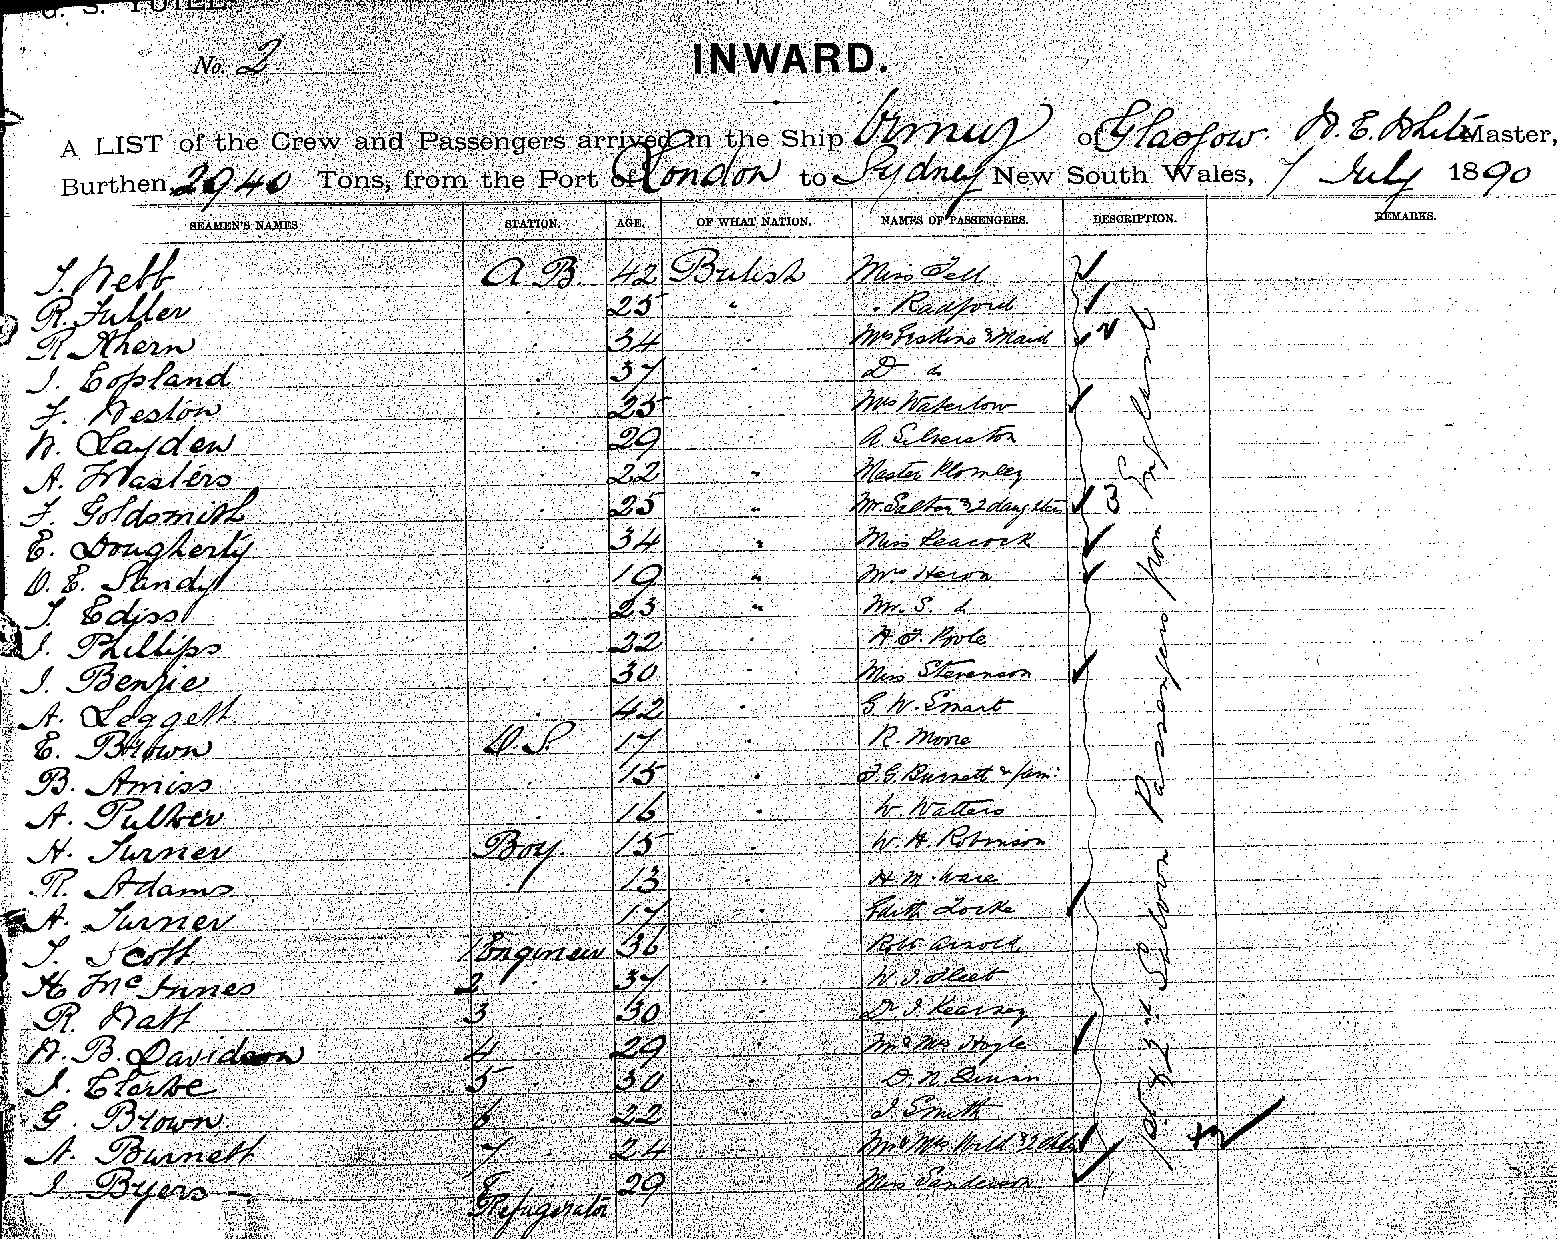 No. 2
INWARD.
A LIST of the Crew and Passengers arrived in the Ship Ormuz of Glasgow. Master,
Burthen 2940 Tons, from the Port of London to Sydney New South Wales, 7 July 1890
SEAMEN'S NAMES STATION. AGE. OF WHAT NATION. NAMES OF PASSENGERS. DESCRIPTION. REMARKS.
Webb A B. 42 British Miss Fell
R. Fuller 25 " " Radford
R Ahern 34 " Mrs Erskine & Maid 2
J. Copland 37 " Do
F. Weston 25 " Mrs Waterlow
W. Layden 29 " A Silverston
A. Masters 22 " Master Plomley
F. Goldsmith 25 " Mr. Salton & 2 daughters 3
E. Dougherty 34 " Miss Peacock
O. E. Sandy 19 " Mrs Heron
T. Ediss 23 " Mr. S.
J. Phillips 22 " H. F. Poole
J. Benzie 30 " Miss Stevenson
A. Leggett 42 " G. W. Smart
E. Brown O.S. 17 " R. Moore
B. Amiss 15 " F. G. Burnett & fam:
A. Pulver 16 " W. Watters
H. Turner Boy. 15 " W. H. Robinson
R. Adams 13 " H. M. Ware
A. Turner 17 " Edith Locke
T. Scott 1 Engineer 36 " Arnold
H McInnes 2 37 " W. J. Fleet
R. Watt 3 30 " Dr J. Kearney
W. B. Davidson 4 29 " Mr & Mrs Hoyle
J. 5 30 "
G. Brown 6 22 " J Smith
A. Burnett 7 24 " Mr & Mrs Wild & 2 chn
J Byers 8 29 Mrs Sanderson
Refrigerator
1st & 2nd Saloon Passengers from England